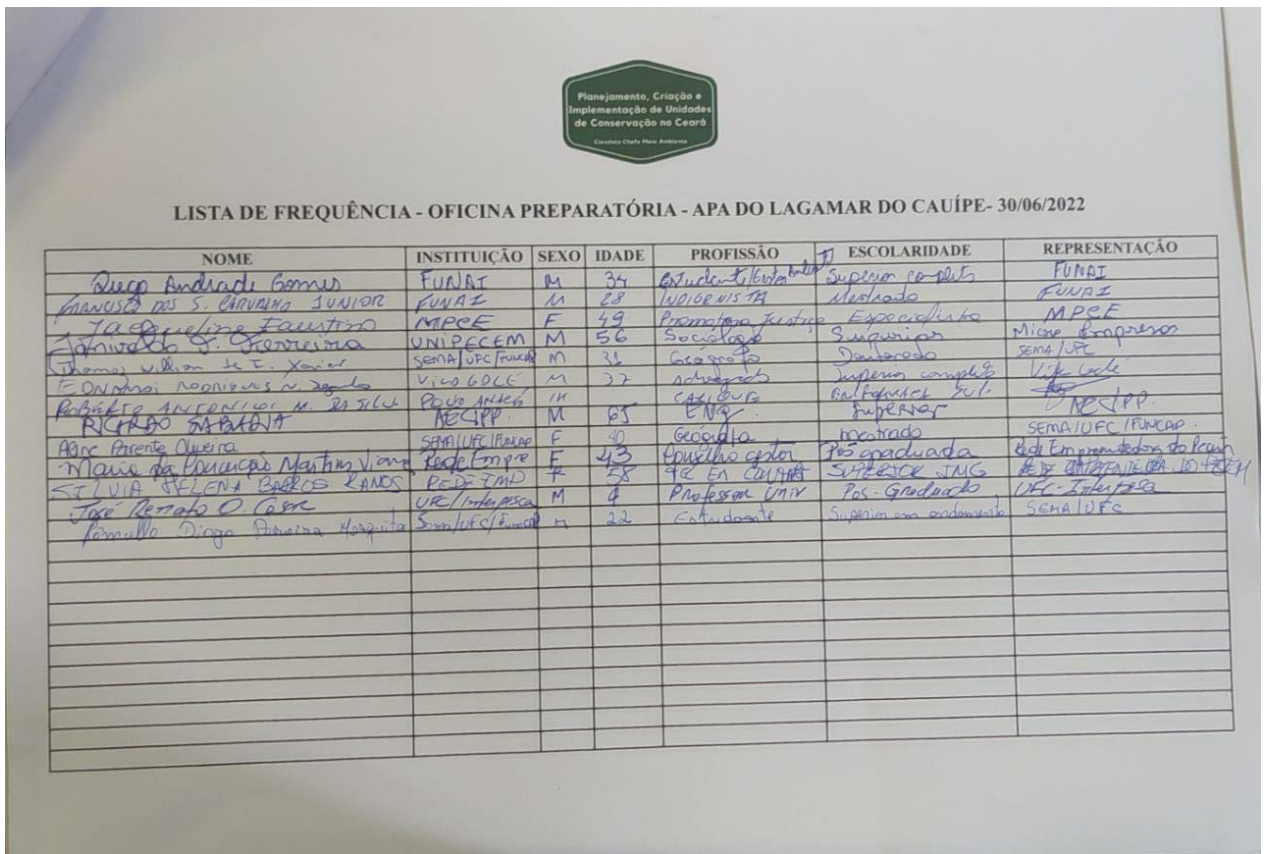 Planejamento, Criação e
Implementação de Unidades
de Conservação no Ceará
Cientista Chefe Meio Ambiente
LISTA DE FREQUÊNCIA - OFICINA PREPARATÓRIA - APA DO LAGAMAR DO CAUÍPE- 30/06/2022
NOME INSTITUIÇÃO SEXO IDADE PROFISSÃO ESCOLARIDADE REPRESENTAÇÃO
Diego Andrade Gomes FUNAI M 34 Estudante/ Superior completo FUNAI
FRANCISCO DOS S. CARVALHO JUNIOR FUNAI M 28 INDIGENISTA Mestrado FUNAI
Jacqueline Faustino MPCE F 49 Promotora Justiça Especialista MPCE
F. Ferreira UNIPECEM M 56 Sociólogo Superior Micro Empresas
Thomaz Willian de F. Xavier SEMA/UFC/FUNCAP M 31 Geógrafo Doutorado SEMA/UFC
RODRIGUES N. M 37 Advogado Superior completo
ROBERTO ANTONIO M. DA SILVA POVO ANACÉ M
RICARDO SABADIA AECIPP. M 65 ENG. Superior AECIPP.
Aline Parente Oliveira SEMA/UFC/FUNCAP F Geógrafa Mestrado SEMA/UFC/FUNCAP.
Maria da Conceição Martins Viana Rede Empre F 43 Conselho gestor Pós graduada Rede Empreendedora do Pecém
SILVIA HELENA BARROS RAMOS REDE EMP F 58 SUPERIOR
José Renato O. César UFC/Interpesca M Professor Univ Pós-Graduado UFC-Interpesca
Romullo Diogo Mesquita Sema/UFC/Funcap M 22 Estudante Superior em andamento SEMA/UFC